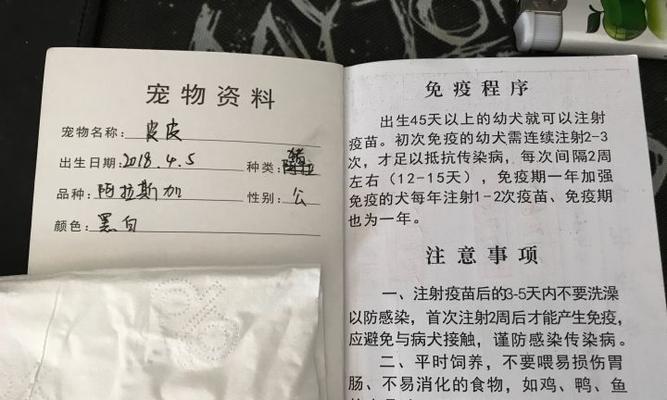 宠物资料
宠物名称：皮皮
出生日期：2018.4.5 种类：
品种：阿拉斯加 性别：公
颜色：黑白
免疫程序
出生45天以上的幼犬就可以注射
疫苗。初次免疫的幼犬需连续注射2-3
次，才足以抵抗传染病，每次间隔2周
左右（12-15天），免疫期一年加强
免疫的犬每年注射1-2次疫苗、免疫期
也为一年。
注意事项
一、注射疫苗后的3-5天内不要洗澡
以防感染，首次注射2周后才能产生免疫，
应避免与病犬接触，谨防感染传染病。
二、平时饲养，不要喂易损伤胃
肠、不易消化的食物，如鸡、鸭、鱼